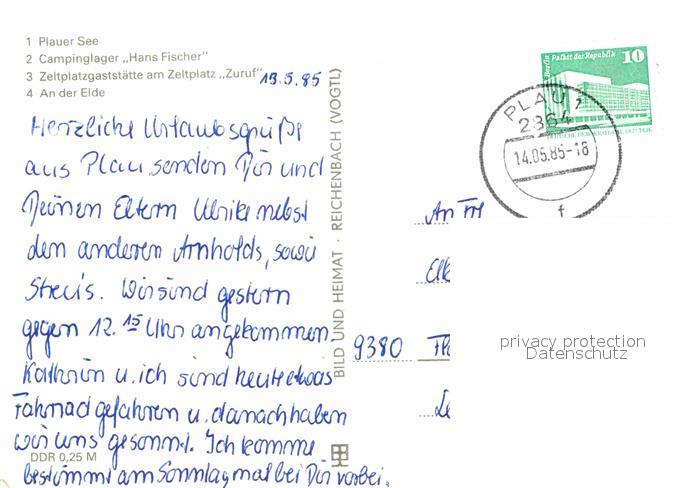 1 Plauer See
2 Campinglager „Hans Fischer"
3 Zeltplatzgaststätte am Zeltplatz „Zuruf"
4 An der Elde
13.5.85
Herzliche Urlaubsgrüße
aus Plau senden Dir und
Deinen Eltern Ulrike nebst
den anderen Arnholds, sowie
Streu's. Wir sind gestern
gegen 12.15 Uhr angekommen.
Kathrin u. ich sind heute etwas
Fahrrad gefahren u. danach haben
wir uns gesonnt. Ich komme
bestimmt am Sonntag mal bei Dir vorbei.
DDR 0,25 M
BILD UND HEIMAT · REICHENBACH (VOGTL)
Berlin Palast der Republik 10
PLAU 1
2864
14.05.85-18
f
An
9380
privacy protection
Datenschutz